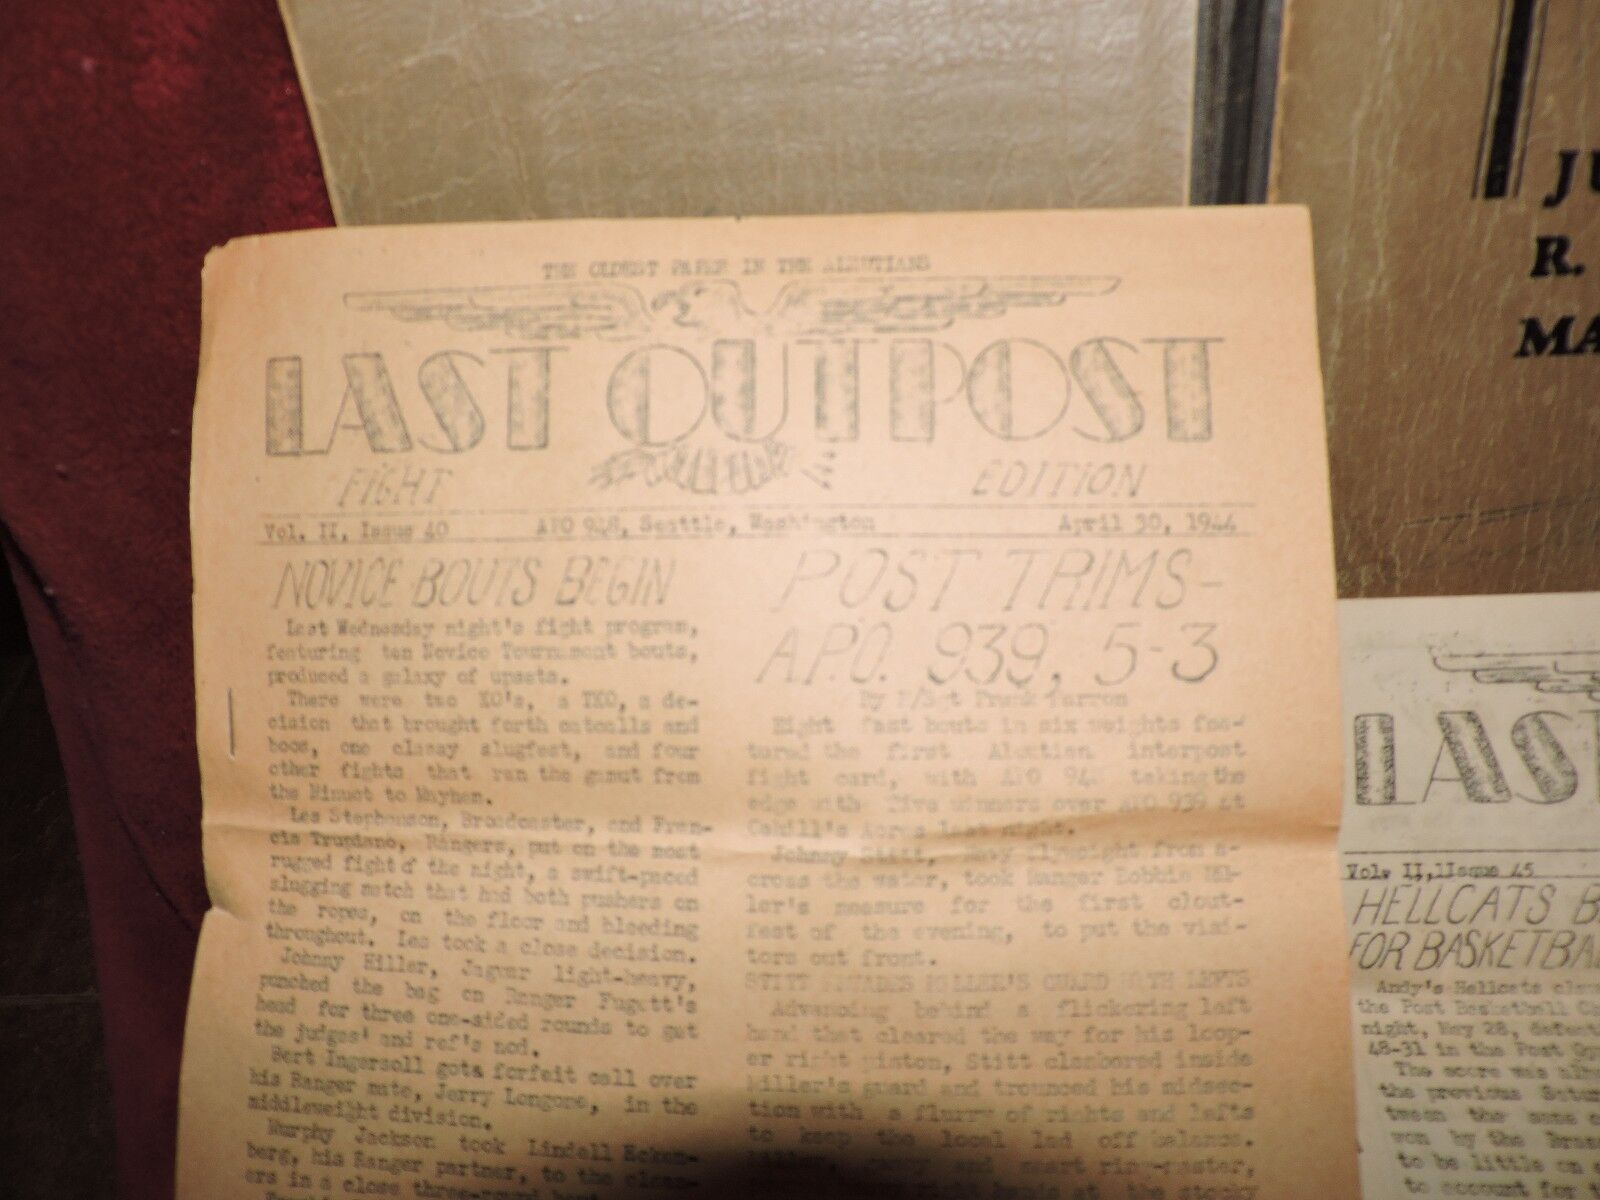 THE OLDEST PAPER IN THE ALEUTIANS
LAST OUTPOST
FIGHT EDITION
Vol. II, Issue 40 APO 948, Seattle, Washington April 30, 1944
NOVICE BOUTS BEGIN
Last Wednesday night's fight program,
featuring ten Novice Tournament bouts,
produced a galaxy of upsets.
There were two KO's, a TKO, a de-
cision that brought forth catcalls and
boos, one classy slugfest, and four
other fights that ran the gamut from
the Minuet to Mayhem.
Les Stephenson, Broadcaster, and Fran-
cis Trupiano, Rangers, put on the most
rugged fight of the night, a swift-paced
slugging match that had both pushers on
the ropes, on the floor and bleeding
throughout. Les took a close decision.
Johnny Hiller, Jaguar light-heavy,
punched the bag on Ranger Fugett's
head for three one-sided rounds to get
the judges' and ref's nod.
Bert Ingersoll got a forfeit call over
his Ranger mate, Jerry Longone, in the
middleweight division.
Murphy Jackson took Lindell Ecken-
berg, his Ranger partner, to the clean-
ers in a close three-round
POST TRIMS-
A.P.O. 939, 5-3
By Frank
Eight fast bouts in six weights fea-
tured the first Aleutian interpost
fight card, with APO 948 taking the
edge with five winners over APO 939 at
Cahill's Acres last night.
Johnny Stitt, Navy flyweight from a-
cross the water, took Ranger Bobbie Mil-
ler's measure for the first clout-
fest of the evening, to put the visi-
tors out front.
STITT MILLER'S GUARD WITH LEFTS
Advancing behind a flickering left
hand that cleared the way for his loop-
er right piston, Stitt clambored inside
Miller's guard and trounced his midsec-
tion with a flurry of rights and lefts
to keep the local lad off balance.
and smart ring-master,
right hands at the stocky
JU
R.
MA
LAS
Vol. II, Issue 45
HELLCATS B
FOR BASKETBA
Andy's Hellcats
the Post Basketball
night, May 28,
48-31 in the Post
The score was
the previous
tween the same
won by the
to be little
to account for